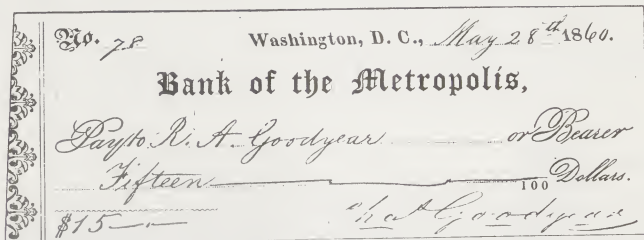 No. 78 Washington, D. C., May 28th 1860.
Bank of the Metropolis,
Pay to R. A. Goodyear or Bearer
Fifteen 100 Dollars.
$15 Chas Goodyear